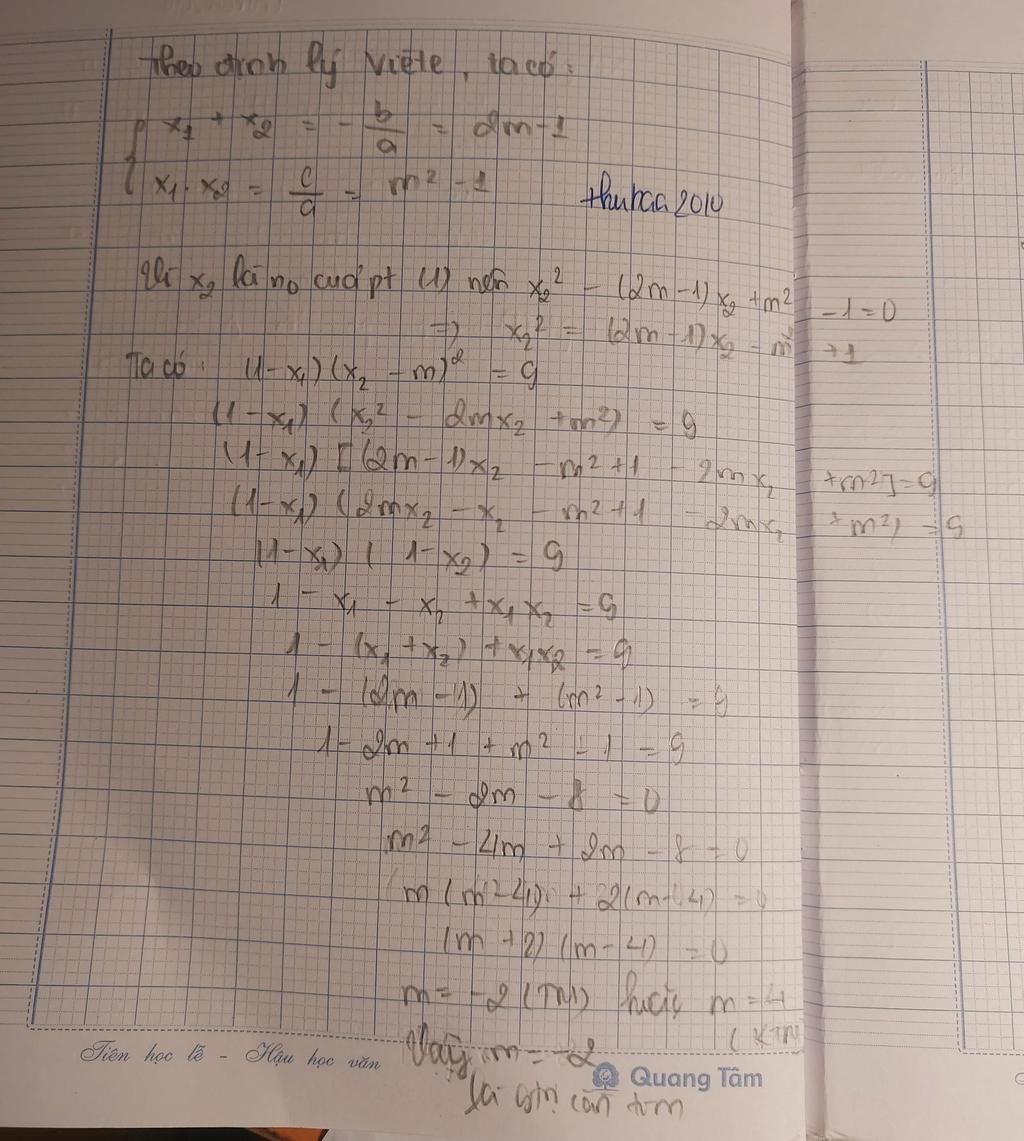 Theo định lý Viète, ta có:
x₁ + x₂ = - b/a = 2m-1
x₁. x₂ = c/a = m² - 1
thuhaa2010
Vì x₂ là n₀ của pt (1) nên x₂² - (2m-1)x₂ + m² - 1 = 0
=> x₂² = (2m-1)x₂ - m² + 1
Ta có: (1-x₁)(x₂ - m)² = 9
(1-x₁)(x₂² - 2mx₂ + m²) = 9
(1-x₁)[(2m-1)x₂ - m² + 1 - 2mx₂ + m²] = 9
(1-x₁)(2mx₂ - x₂ - m² + 1 - 2mx₂ + m²) = 9
(1-x₁)(1-x₂) = 9
1 - x₁ - x₂ + x₁x₂ = 9
1 - (x₁+x₂) + x₁x₂ = 9
1 - (2m-1) + (m²-1) = 9
1 - 2m + 1 + m² - 1 = 9
m² - 2m - 8 = 0
m² - 4m + 2m - 8 = 0
m(m-4) + 2(m-4) = 0
(m+2)(m-4) = 0
m = -2 (TM) hoặc m = 4
(KTM
Vậy m = -2
là gtrị cần tìm
Tiên học lễ - Hậu học văn
Quang Tâm